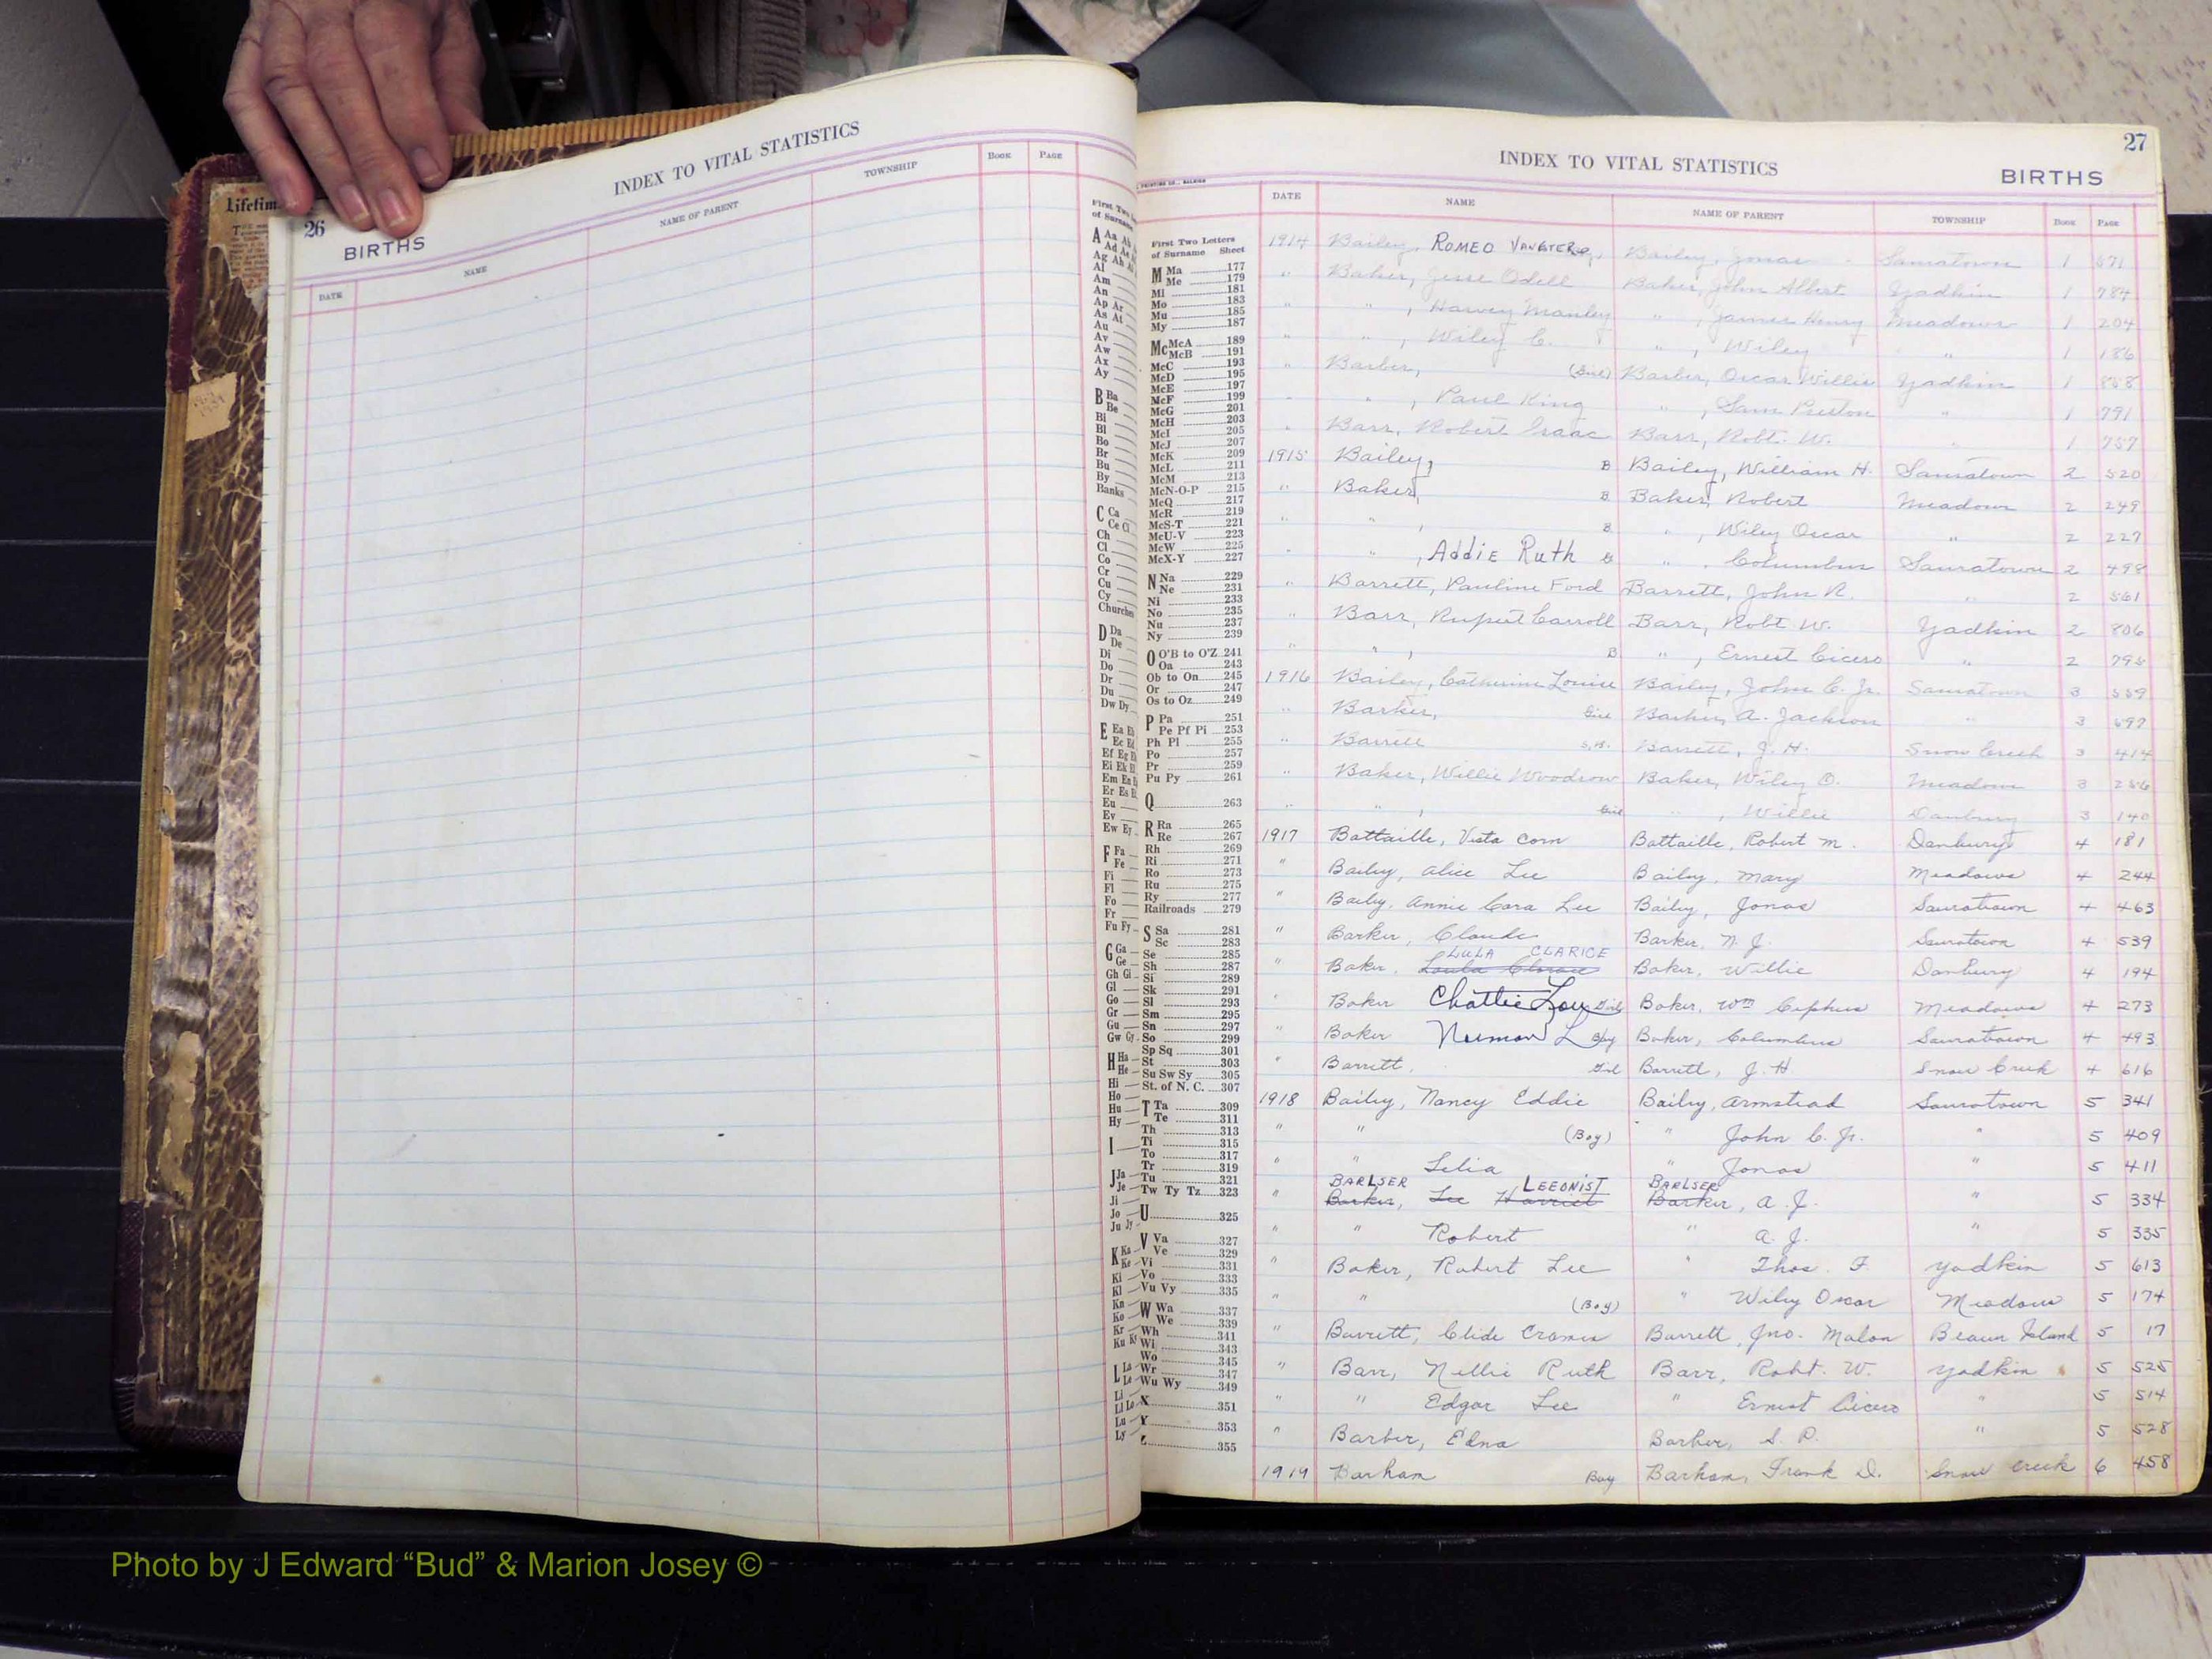 Lifetim
26
BIRTHS
INDEX TO VITAL STATISTICS
DATE NAME NAME OF PARENT TOWNSHIP BOOK PAGE
27
INDEX TO VITAL STATISTICS
BIRTHS
DATE NAME NAME OF PARENT TOWNSHIP BOOK PAGE
First Two Letters
of Surname Sheet
M Ma 177
Me 179
Mi 181
Mo 183
Mu 185
My 187
Mc McA 189
McB 191
McC 193
McD 195
McE 197
McF 199
McG 201
McH 203
McI 205
McJ 207
McK 209
McL 211
McM 213
McN-O-P 215
McQ 217
McR 219
McS-T 221
McU-V 223
McW 225
McX-Y 227
N Na 229
Ne 231
Ni 233
No 235
Nu 237
Ny 239
O O'B to O'Z 241
Oa 243
Ob to On 245
Or 247
Os to Oz 249
P Pa 251
Pe Pf Pi 253
Ph Pl 255
Po 257
Pr 259
Pu Py 261
Q 263
R Ra 265
Re 267
Rh 269
Ri 271
Ro 273
Ru 275
Ry 277
Railroads 279
S Sa 281
Sc 283
Se 285
Sh 287
Si 289
Sk 291
Sl 293
Sm 295
Sn 297
So 299
Sp Sq 301
St 303
Su Sw Sy 305
St. of N. C. 307
T Ta 309
Te 311
Th 313
Ti 315
To 317
Tr 319
Tu 321
Tw Ty Tz 323
U 325
V Va 327
Ve 329
Vi 331
Vo 333
Vu Vy 335
W Wa 337
We 339
Wh 341
Wi 343
Wo 345
Wr 347
Wu Wy 349
X 351
Y 353
355
1914 Bailey, ROMEO Bailey, Jonas Sauratown 1 571
" Baker, Jesse Odell Baker, John Albert Yadkin 1 784
" " , Harvey Manley " , James Henry Meadows 1 204
" " , Wiley C. " , Wiley " 1 186
" Barber, (Girl) Barber, Oscar Willis Yadkin 1 858
" " , Paul King " , Sam Preston " 1 791
" Barr, Robert Isaac Barr, Robt. W. " 1 757
1915 Bailey, B Bailey, William H. Sauratown 2 520
" Baker, B Baker, Robert Meadows 2 249
" " , B " , Wiley Oscar " 2 227
" " , Addie Ruth G " , Columbus Sauratown 2 498
" Barrett, Pauline Ford Barrett, John R. " 2 561
" Barr, Rupert Carroll Barr, Robt. W. Yadkin 2 806
" " , B " , Ernest Cicero " 2 795
1916 Bailey, Catherine Louise Bailey, John C. Jr. Sauratown 3 559
" Barker, Girl Barker, A. Jackson " 3 597
" Barrett S.B. Barrett, J. H. Snow Creek 3 414
" Baker, Willie Woodrow Baker, Wiley O. Meadows 3 256
" " , Girl " , Willie Danbury 3 140
1917 Battaille, Vista Corn Battaille, Robert M. Danbury 4 181
" Bailey, Alice Lee Bailey, Mary Meadows 4 244
" Bailey, Annie Cora Lee Bailey, Jonas Sauratown 4 463
" Barker, Claude Barker, N. J. Sauratown 4 539
LULA CLARICE
" Baker, Baker, Willie Danbury 4 194
" Baker Chattie Lou Girl Baker, Wm Cephus Meadows 4 273
" Baker Neuman L Boy Baker, Columbus Sauratown 4 493
" Barrett, Girl Barrett, J. H. Snow Creek 4 616
1918 Bailey, Nancy Eddie Bailey, Armstead Sauratown 5 341
" " (Boy) " John C. Jr. " 5 409
" " Lelia " Jonas " 5 411
BARLSER LEEONIST BARLSER
" Barker, Lee Harriet Barker, A. J. " 5 334
" " Robert " A. J. " 5 335
" Baker, Robert Lee " Thos. F Yadkin 5 613
" " (Boy) " Wiley Oscar Meadows 5 174
" Barrett, Clide Barrett, Jno. Malon Beaver Island 5 17
" Barr, Nellie Ruth Barr, Robt. W. Yadkin 5 525
" " Edgar Lee " Ernest Cicero " 5 514
" Barber, Edna Barber, S. P. " 5 528
1919 Barham Boy Barham, Frank D. Snow Creek 6 458
Photo by J Edward “Bud” & Marion Josey ©